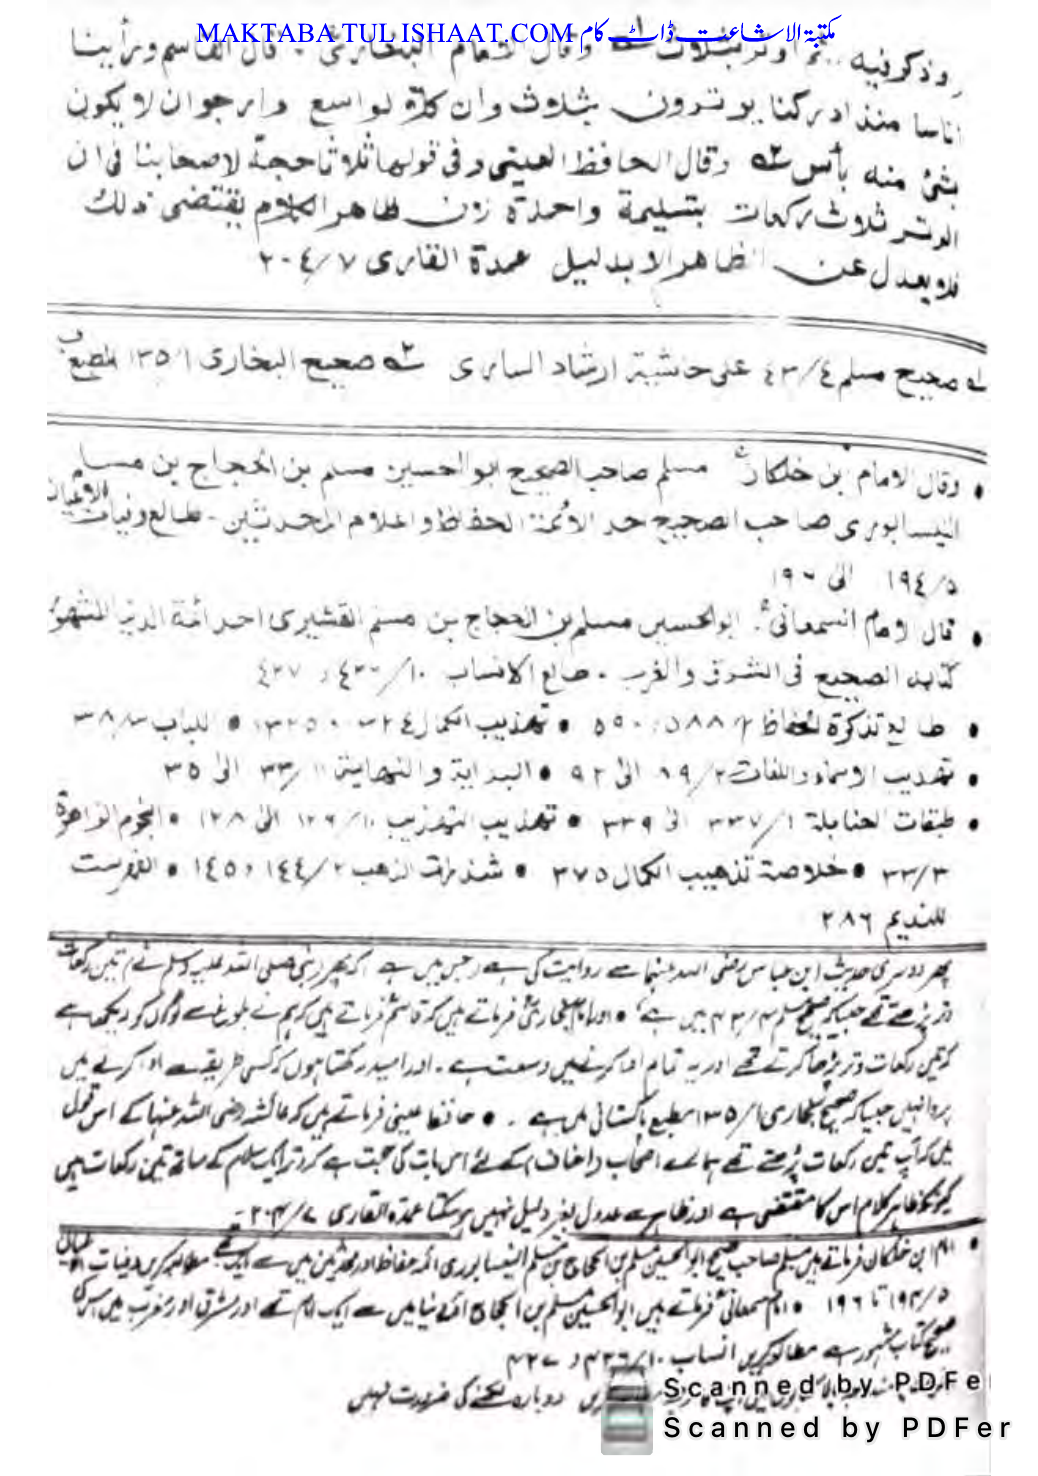 MAKTABA TUL ISHAAT.COM مکتبۃ الاشاعت ڈاٹ کام
وذكر فيه ثم اوتر بثلاث وقال الامام البخارى قال القاسم ورأينا
اناسا منذ ادركنا يوترون بثلاث وان كلا لواسع وارجوان لا يكون
بشئ منه بأس وقال الحافظ العينى وفى قولها ثلاثا حجة لاصحابنا فى ان
الوتر ثلاث ركعات بتسليمة واحدة لان ظاهر الكلام يقتضى ذلك
فلا يعدل عن الظاهر الا بدليل عمدة القارى ٧/٢٠٤
صحيح مسلم ٤/٤٣ على حاشية ارشاد السارى صحيح البخارى ١/١٣٥
وقال الامام بن خلكان مسلم صاحب الصحيح ابو الحسين مسلم بن الحجاج بن مسلم
النيسابورى صاحب الصحيح احد الائمة الحفاظ واعلام المحدثين - طالع وفيات الاعيان
٥/١٩٤ الى ١٩٦
قال الامام السمعانى ابو الحسين مسلم بن الحجاج بن مسلم القشيرى احد ائمة الدنيا المشهور
كتابه الصحيح فى الشرق والغرب - طالع الانساب
طالع تذكرة الحفاظ ٢/٥٨٨ تهذيب الكمال اللباب
تهذيب الاسماء واللغات ٢/٨٩ الى ٩٢ البداية والنهاية ١١/٣٣ الى ٣٥
طبقات الحنابلة ١/٣٣٧ الى ٣٣٩ تهذيب التهذيب ١٠/١٢٦ الى ١٢٨ النجوم الزاهرة
٣/٣٣ خلاصة تذهيب الكمال ٣٧٥ شذرات الذهب ٢/١٤٤ و ١٤٥ الفهرست
للنديم ٢٨٦
پھر دوسری حدیث ابن عباس رضی اللہ عنہما سے روایت کی ہے جس میں ہے کہ پھر نبی صلی اللہ علیہ وسلم نے تین رکعات
وتر پڑھتے تھے جیسا کہ صحیح مسلم ۴/۴۳ میں ہے اور امام بخاری فرماتے ہیں کہ قاسم فرماتے ہیں کہ ہم نے بلوغ سے لوگوں کو دیکھا ہے
کہ تین رکعات وتر پڑھا کرتے تھے اور یہ تمام ادا کرنے میں وسعت ہے - اور امید رکھتا ہوں کہ کسی طریقے سے ادا کرنے میں
پروا نہیں جیسا کہ صحیح بخاری ۱/۱۳۵ مطبع پاکستانی میں ہے - حافظ عینی فرماتے ہیں کہ عائشہ رضی اللہ عنہا کے اس قول
میں کہ آپ تین رکعات پڑھتے تھے ہمارے اصحاب (احناف) کے لئے اس بات کی حجت ہے کہ وتر ایک سلام کے ساتھ تین رکعات ہیں
کیونکہ ظاہر کلام اس کا مقتضی ہے اور ظاہر سے عدول بغیر دلیل نہیں ہو سکتا عمدۃ القاری ۷/۲۰۴ -
امام ابن خلکان فرماتے ہیں مسلم صاحب صحیح ابو الحسین مسلم بن الحجاج بن مسلم النیسابوری ائمہ حفاظ اور محدثین میں سے ایک تھے مطالعہ کریں وفیات الاعیان
۵/۱۹۴ تا ۱۹۶ امام سمعانی فرماتے ہیں ابو الحسین مسلم بن الحجاج ائمہ دنیا میں سے ایک امام تھے اور مشرق اور مغرب میں اس کی
صحیح کتاب مشہور ہے مطالعہ کریں انساب ۱۰/۴۲۶ و ۴۲۷
دوبارہ لکھنے کی ضرورت نہیں
Scanned by PDFe
Scanned by PDFer